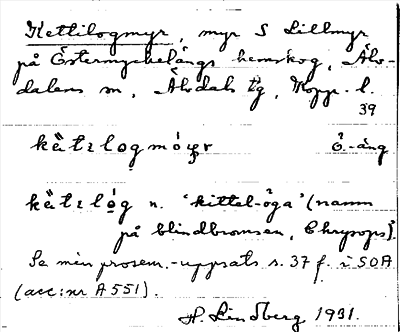 Kettilogmyr, myr S Lillmyr
på Östermyckelängs hemskog, Älv-
dalens sn, Älvdals tg, Kopp. l.
39
kètzlogmóyr Ö.-äng
kètzlóg n. 'kittel-öga' (namn
på blindbromsen, Chrysops).
Se min prosem.-uppsats s. 37 f. i SOA
(acc:nr A 551).
H. Lindberg 1931.